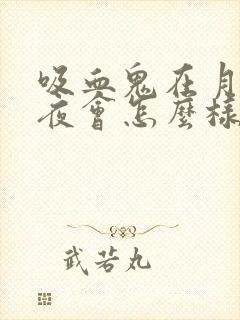 吸血鬼在月
夜會怎麼樣
武若丸